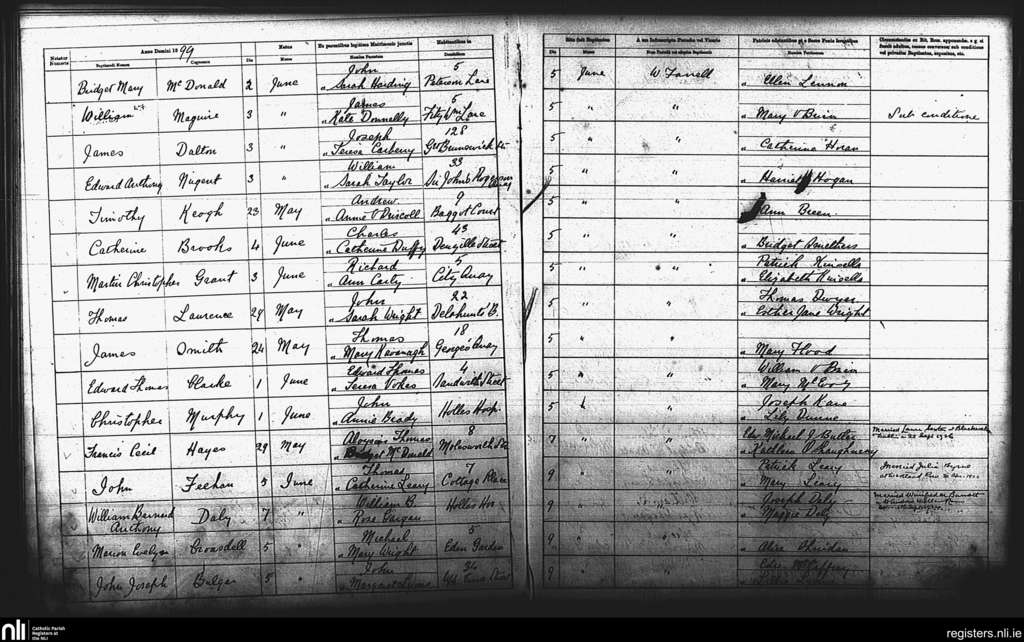 Anno Domini 1899
Natus
Ex parentibus legitimo Matrimonio junctis
Habitantibus in
Numerus
Baptizati Nomen
Cognomen
Die
Mense
Nomina Parentum
Domicilium
Bridget Mary Mc Donald 2 June John 5
" Sarah Harding Petersons Lane
William Maguire 3 " James 5
" Kate Donnelly Fitzwm Lane
James Dalton 3 " Joseph 128
" Teresa Carberry Gt Brunswick St
Edward Anthony Nugent 3 " William 33
" Sarah Taylor Sir John's Rogerson Quay
Timothy Keogh 23 May Andrew 9
" Annie O'Driscoll Baggot Court
Catherine Brooks 4 June Charles 43
" Catherine Duffy Denzille Street
Martin Christopher Grant 3 June Richard 5
" Ann Carty City Quay
Thomas Laurence 29 May John 22
" Sarah Wright Delahunts B.
James Smith 24 May Thomas 18
" Mary Kavanagh George's Quay
Edward Thomas Clarke 1 June Edward Thomas 4
" Teresa Vokes Sandwith Street
Christopher Murphy 1 June John
" Annie Brady Holles Hosp.
Francis Cecil Hayes 29 May Aloysius Thomas 8
" Bridget Mc Donald Molesworth St
John Feehan 5 June Thomas 7
" Catherine Leary Cottage Place
William Bernard Anthony Daly 7 " William B.
" Rose Holles Hos
Marion Evelyn 5 " Michael 5
" Mary Wright Eden Garden
John Joseph Bulger 5 " John 34
" Margaret
Die
Mense
Nomina Patrinorum
5 June W Farrell
" Ellen Lennon
5 " "
" Mary O'Brien Sub conditione
5 " "
" Catherine Horan
5 " "
" Harriet Hogan
5 " "
" Ann Breen
5 " "
" Bridget Smethers
5 " " Patrick Kinsella
" Elizabeth Kinsella
5 " " Thomas Dwyer
" Esther Jane Wright
5 " "
" Mary Flood
5 " " William O'Brien
" Mary McEvoy
5 " " Joseph Kane
" Lily Dunne
7 " " Edw Michael J Butler
" Kathleen O'Shaughnessy
9 " " Patrick Leary Married Julia Byrne
" Mary Leary
9 " " Joseph Daly
" Maggie Daly
9 "
" Alice Sheridan
9
nli
Catholic Parish
Registers at
the NLI
registers.nli.ie